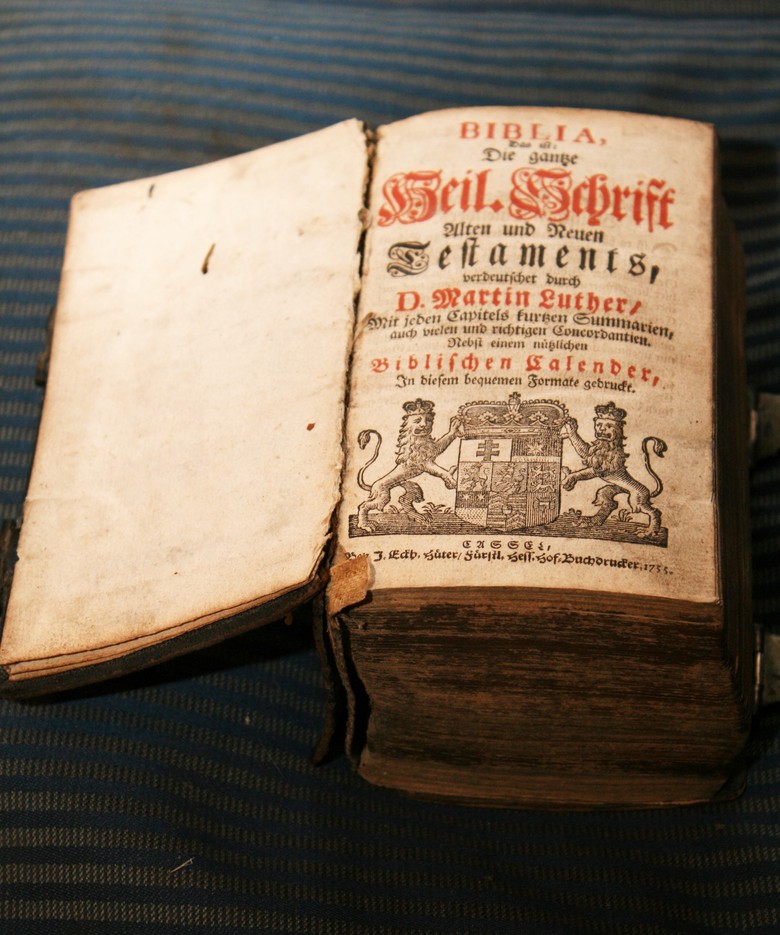 BIBLIA,
Das ist:
Die gantze
Heil. Schrift
Alten und Neuen
Testaments,
verdeutschet durch
D. Martin Luther/
Mit jeden Capitels kurtzen Summarien,
auch vielen und richtigen Concordantien.
Nebst einem nützlichen
Biblischen Calender,
In diesem bequemen Formate gedruckt.
CASSEL,
J. Eckh. Hüter/ Fürstl. Hess. Hof-Buchdrucker, 1755.